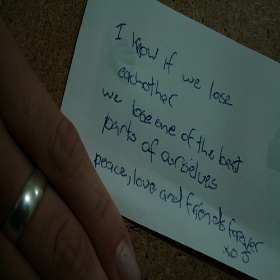 I know if we lose
eachother
we lose one of the best
parts of ourselves
peace, love and friends forever
xo